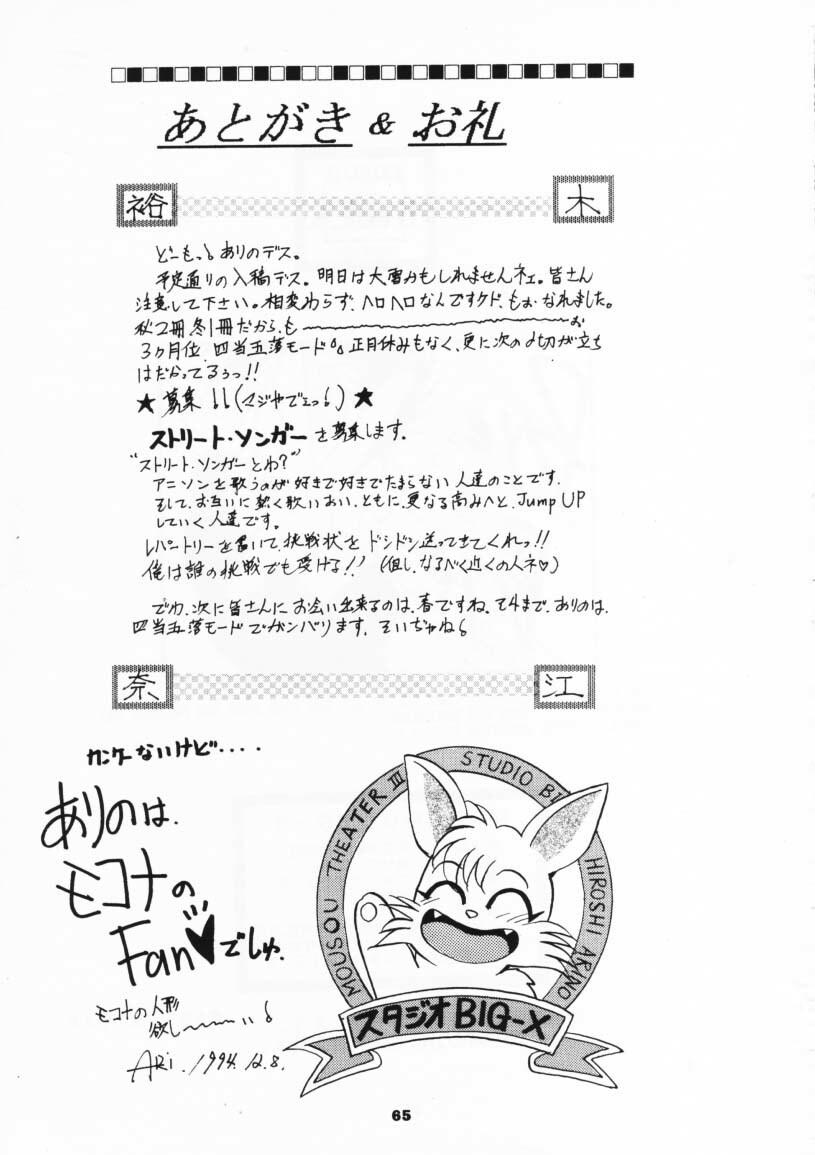 あとがき & お礼
裕 木
どーもっ! ありのデス。
予定通りの入稿デス。明日は大雪かもしれませんネェ。皆さん
注意して下さい。相変わらず、ヘロヘロなんですケド、もぉ、なれました。
秋2冊冬1冊だから、も〜〜〜〜〜お
3ヶ月位、四当五落モード。正月休みもなく、更に次の〆切が立ち
はだかってるぅっ!!
★ 募集!!(マジやでェっ!) ★
ストリート・ソンガーを募集します。
"ストリート・ソンガーとわ?"
アニソンを歌うのが好きで好きでたまらない人達のことです。
そして、お互いに熱く歌いあい、ともに、更なる高みへと、Jump UP
していく人達です。
レパートリーを書いて、挑戦状をドシドシ送ってきてくれっ!!
俺は誰の挑戦でも受ける!! (但し、なるべく近くの人ネ♡)
でわ、次に皆さんにお会い出来るのは、春ですね。それまで、ありのは、
四当五落モードでガンバリます。そいぢゃね!
奈 江
カンケーないけど・・・・
ありのは、
モコナの
Fan♥でしゅ。
モコナの人形
欲し〜〜〜い!
ARI. 1994.12.8.
MOUSOU THEATER III STUDIO BI HIROSHI ARINO
スタジオBIG-X
65